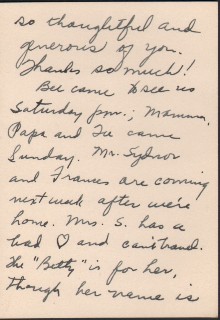 so thoughtful and
generous of you.
Thanks so much!
Bee came to see us
Saturday p.m.; Mamma,
Papa and Tee came
Sunday. Mr. Sydnor
and Frances are coming
next week after we're
home. Mrs. S. has a
bad ♡ and can't travel.
The "Betty" is for her,
though her name is